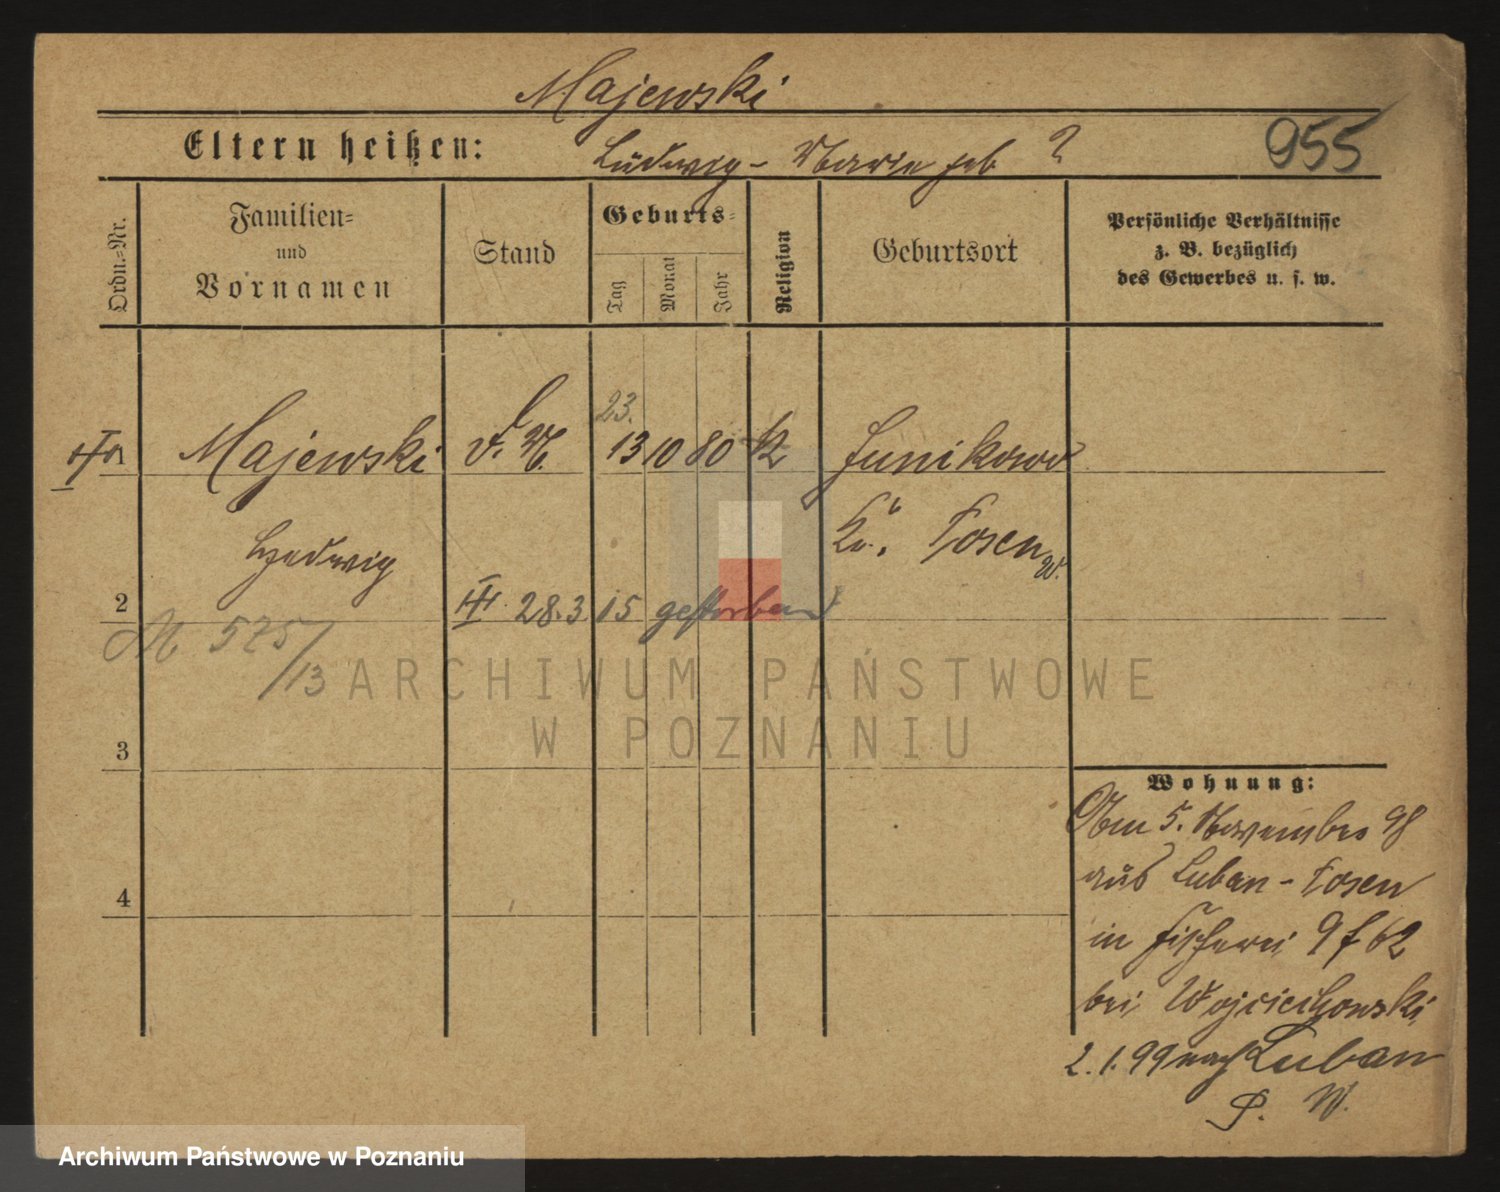 Majewski
Eltern heißen: Ludwig - Marie geb ?
955
Ordn.=Nr.
Familien= und Vornamen
Stand
Geburts=
Tag
Monat
Jahr
Religion
Geburtsort
Persönliche Verhältnisse
z. B. bezüglich
des Gewerbes u. s. w.
23.
1 Majewski 13 10 80 K Junikowo
Kr. Posen W.
Hedwig
2 III 28.3 15 gestorben
M 575/13
3
4
Wohnung:
Am 5. November 98
aus Luban - Posen
in Fischerei 9 f 62
bei Wojciechowski
2. 1. 99 nach Luban
P. W.
ARCHIWUM PAŃSTWOWE
W POZNANIU
Archiwum Państwowe w Poznaniu